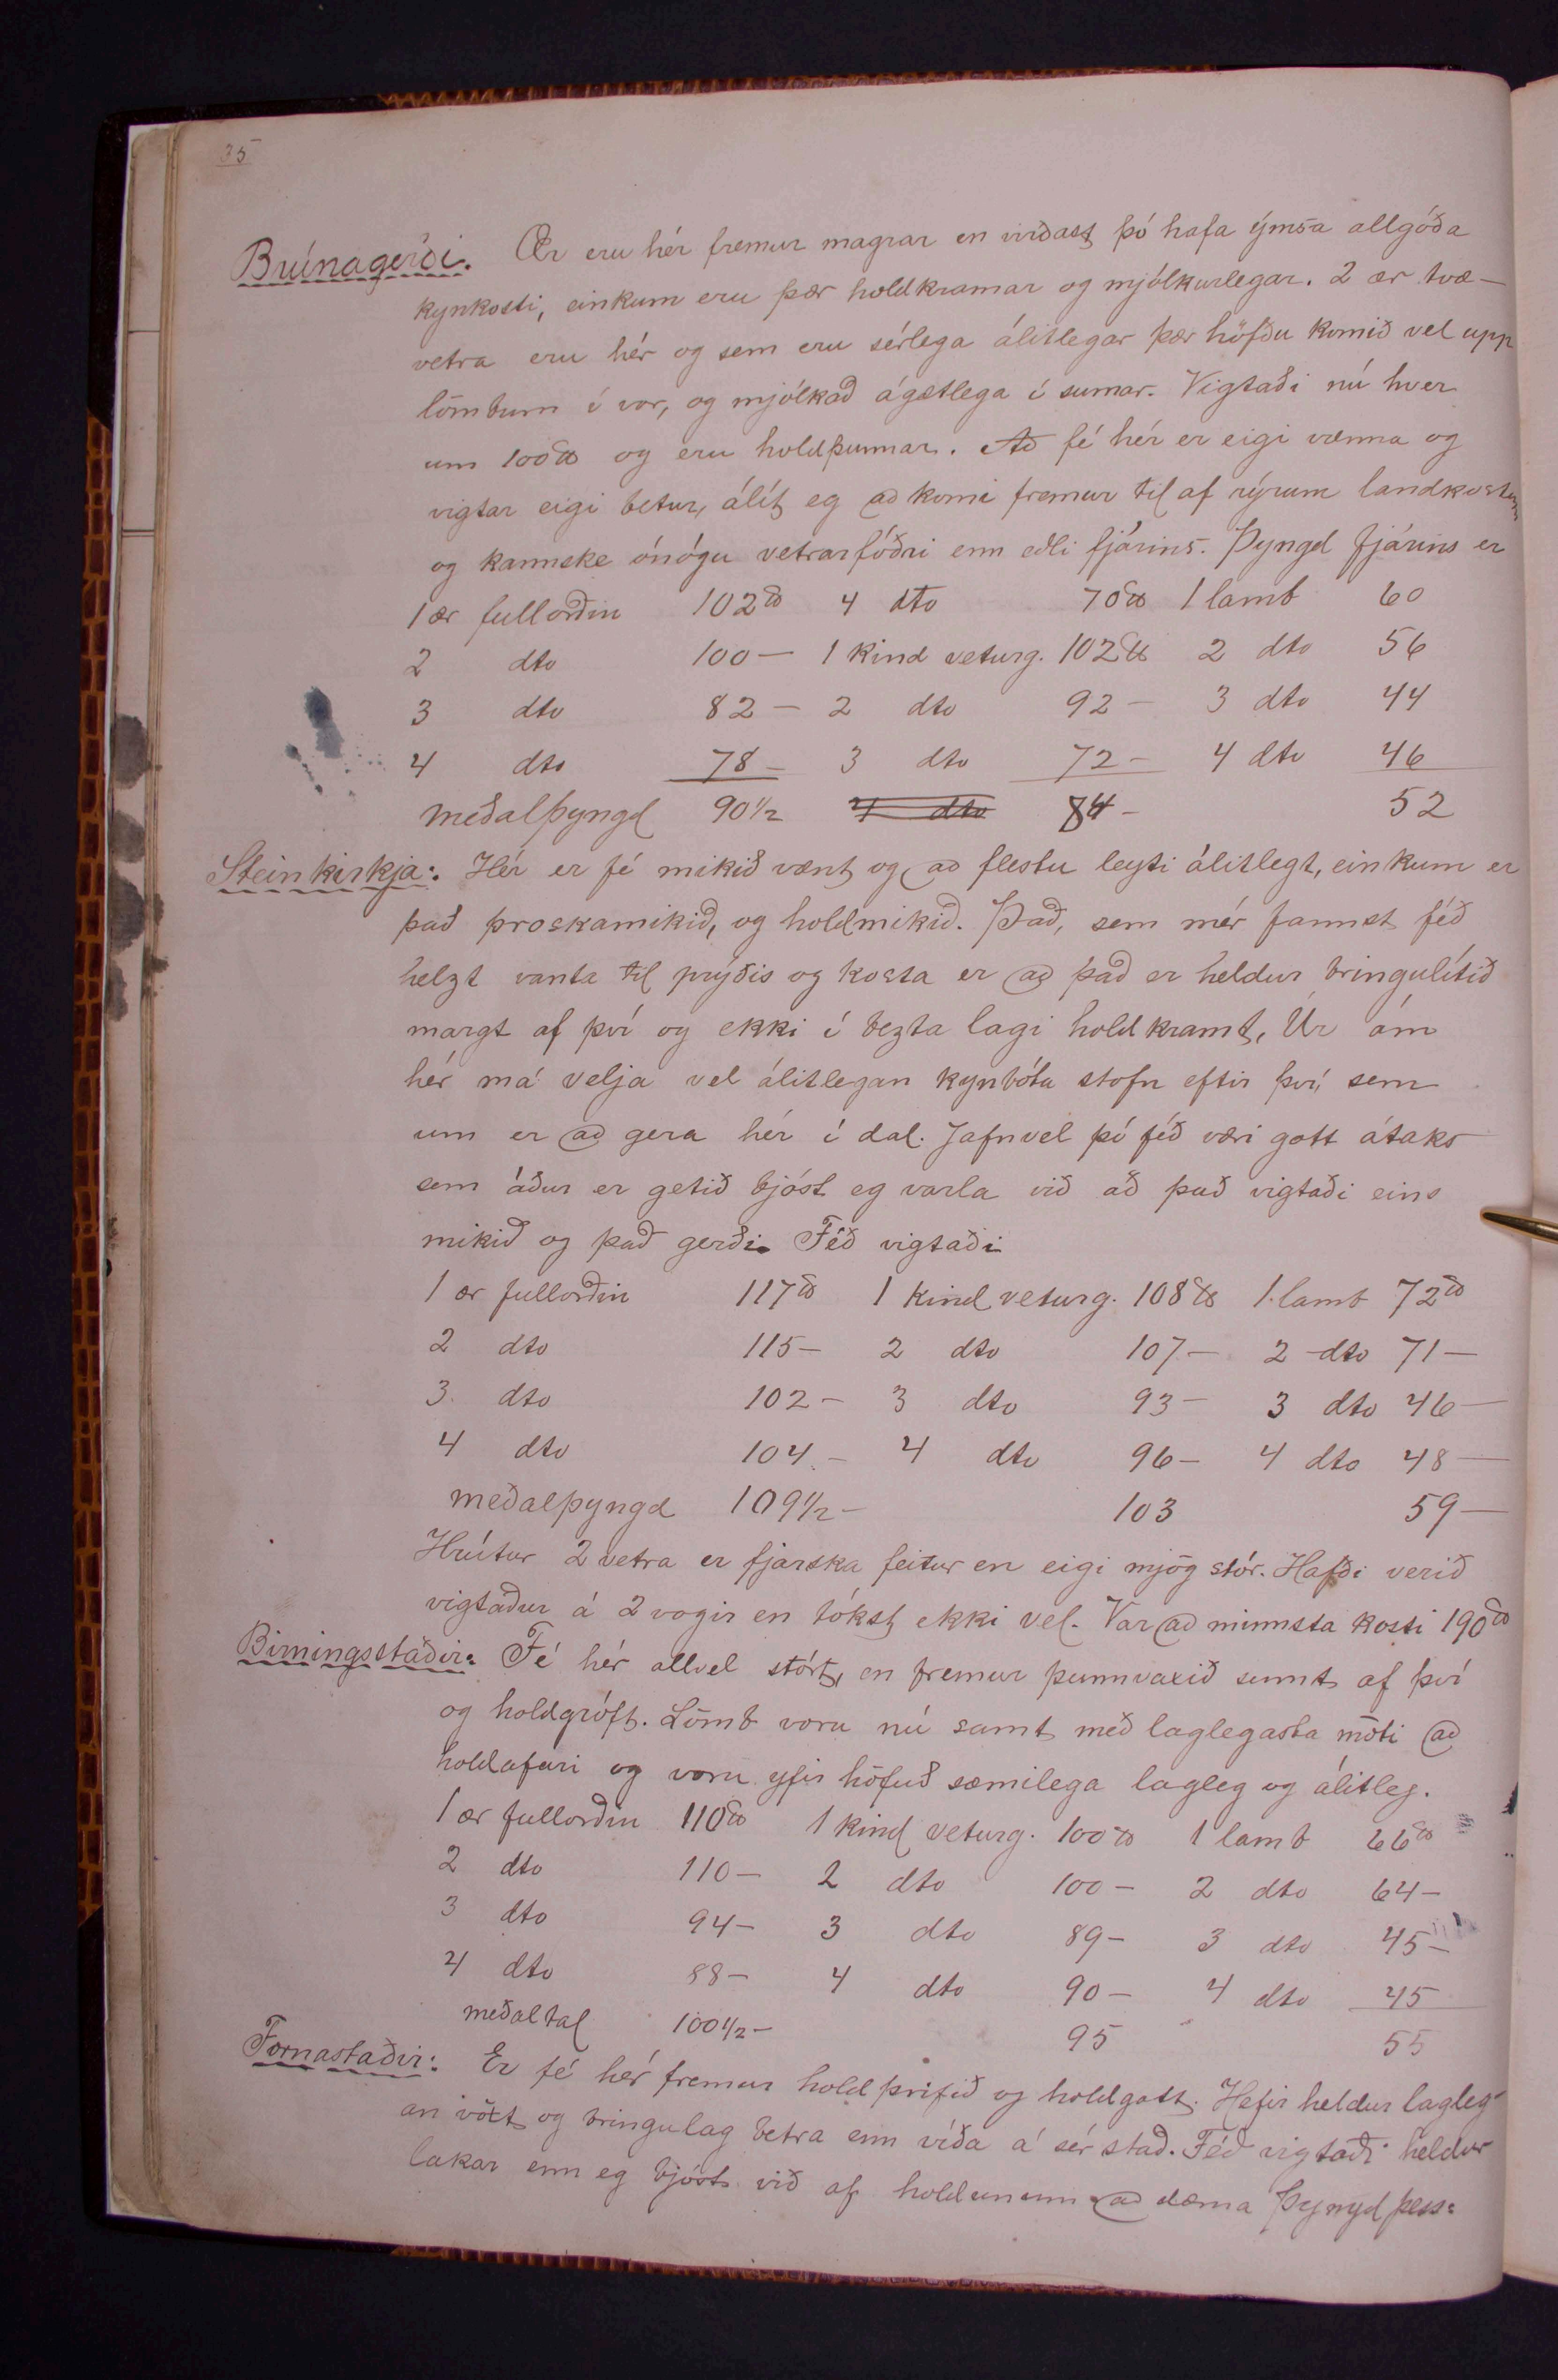 35
Brúnagerði. Ær eru hér fremur magrar en virðast þó hafa ýmsa allgóða
kynkosti, einkum eru þær holdkramar og mjólkurlegar. 2 ær tvæ-
vetra eru hér og sem eru sérlega álitlegar þær höfðu komið vel upp
lömbum í vor, og mjólkað ágætlega í sumar. Vigtaði nú hver
um 100 ℔ og eru holdþunnar. Að fé hér er eigi vænna og
vigtar eigi betur, álít eg að komi fremur til af rýrum landkostum
og kannske ónógu vetrarfóðri enn eðli fjárins. Þyngd fjárins er
1 ær fullorðin 102 ℔ 4 dto 70 ℔ 1 lamb 60
2 dto 100 — 1 kind veturg. 102 ℔ 2 dto 56
3 dto 82 — 2 dto 92 — 3 dto 44
4 dto 78 — 3 dto 72 — 4 dto 46
meðalþyngd 90 1/2 4 dto 84 — 52
Steinkirkja: Hér er fé mikið vænt og að flestu leyti álitlegt, einkum er
það þroskamikið, og holdmikið. Það, sem mér fannst féð
helzt vanta til prýðis og kosta er að það er heldur bringulítið
margt af því og ekki í bezta lagi holdkramt. Úr ám
hér má velja vel álitlegan kynbóta stofn eftir því, sem
um er að gera hér í dal. Jafnvel þó féð væri gott átaks
sem áður er getið bjóst eg varla við að það vigtaði eins
mikið og það gerði. Féð vigtaði
1 ær fullorðin 117 ℔ 1 kind veturg. 108 ℔ 1 lamb 72 ℔
2 dto 115 — 2 dto 107 — 2 dto 71 —
3 dto 102 — 3 dto 93 — 3 dto 46 —
4 dto 104 — 4 dto 96 — 4 dto 48 —
meðalþyngd 109 1/2 — 103 59 —
Hrútur 2 vetra er fjarska feitur en eigi mjög stór. Hafði verið
vigtaður á 2 vogir en tókst ekki vel. Var að minnsta kosti 190 ℔
Birningsstaðir: Fé hér allvel stórt, en fremur þunnvaxið sumt af því
og holdgróft. Lömb voru nú samt með laglegasta móti að
holdafari og voru yfir höfuð sæmilega lagleg og álitleg.
1 ær fullorðin 110 ℔ 1 kind veturg. 100 ℔ 1 lamb 66 ℔
2 dto 110 — 2 dto 100 — 2 dto 64 —
3 dto 94 — 3 dto 89 — 3 dto 45 —
4 dto 88 — 4 dto 90 — 4 dto 45
meðaltal 100 1/2 — 95 55
Fornastaðir: Er fé hér fremur holdþrifið og holdgott. Hefir heldur lagleg-
an vöxt og bringulag betra enn víða á sér stað. Féð vigtaði heldur
lakar enn eg bjóst við af holdunum að dæma Þyngd þess: